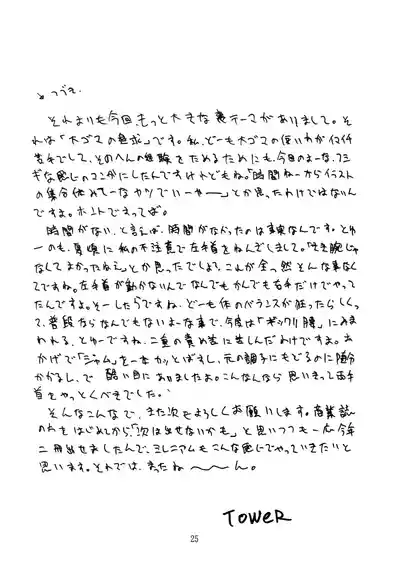 ↘つづき.
それよりも今回もっと大きな裏テーマがありまして。そ
れは「大ゴマの追求」です。私、どーも大ゴマの使いわけがイマイチ
苦手でして、そのへんの経験をためるためにも、今回のよーな、フシ
ギな感じのマンガにしたんですけれどもね。「時間ねーからイラスト
の集合体みてーなヤツでいーや──」とか思ったわけではないん
ですよ。ホントですってば。
時間がない、と言えば、時間がなかったのは事実なんです。とゆ
ーのも、夏頃に私の不注意で左手首をねんざしまして。「きき腕じゃ
なくてよかったねえ」とか思ったでしょ?これが全っ然そんな事なく
てですね。左手首が動かないんでなんでもかんでも右手だけでやって
たんですよ。そーしたらですね、どーも体のバランスが狂ったらしくっ
て、普段ならなんでもないよーな事で、今度は「ギックリ腰」にみま
われる、とゆーですね、二重の責め苦に苦しんだわけですよ。お
かげで「ジャム」を一本かっとばすし、元の調子にもどるのに随分
かかるし、で 酷い目にあいましたよ。こんなんなら思いきって両手
首をやっとくべきでした。
そんなこんなで、また次もよろしくお願いします。商業誌
の方をはじめてから、「次は出せないかも」と思いつつも一応今年
二冊出せましたんで、ミレニアムもこんな感じでやっていきたいと
思います。それでは、まったね〜〜ん。
TOWER
25